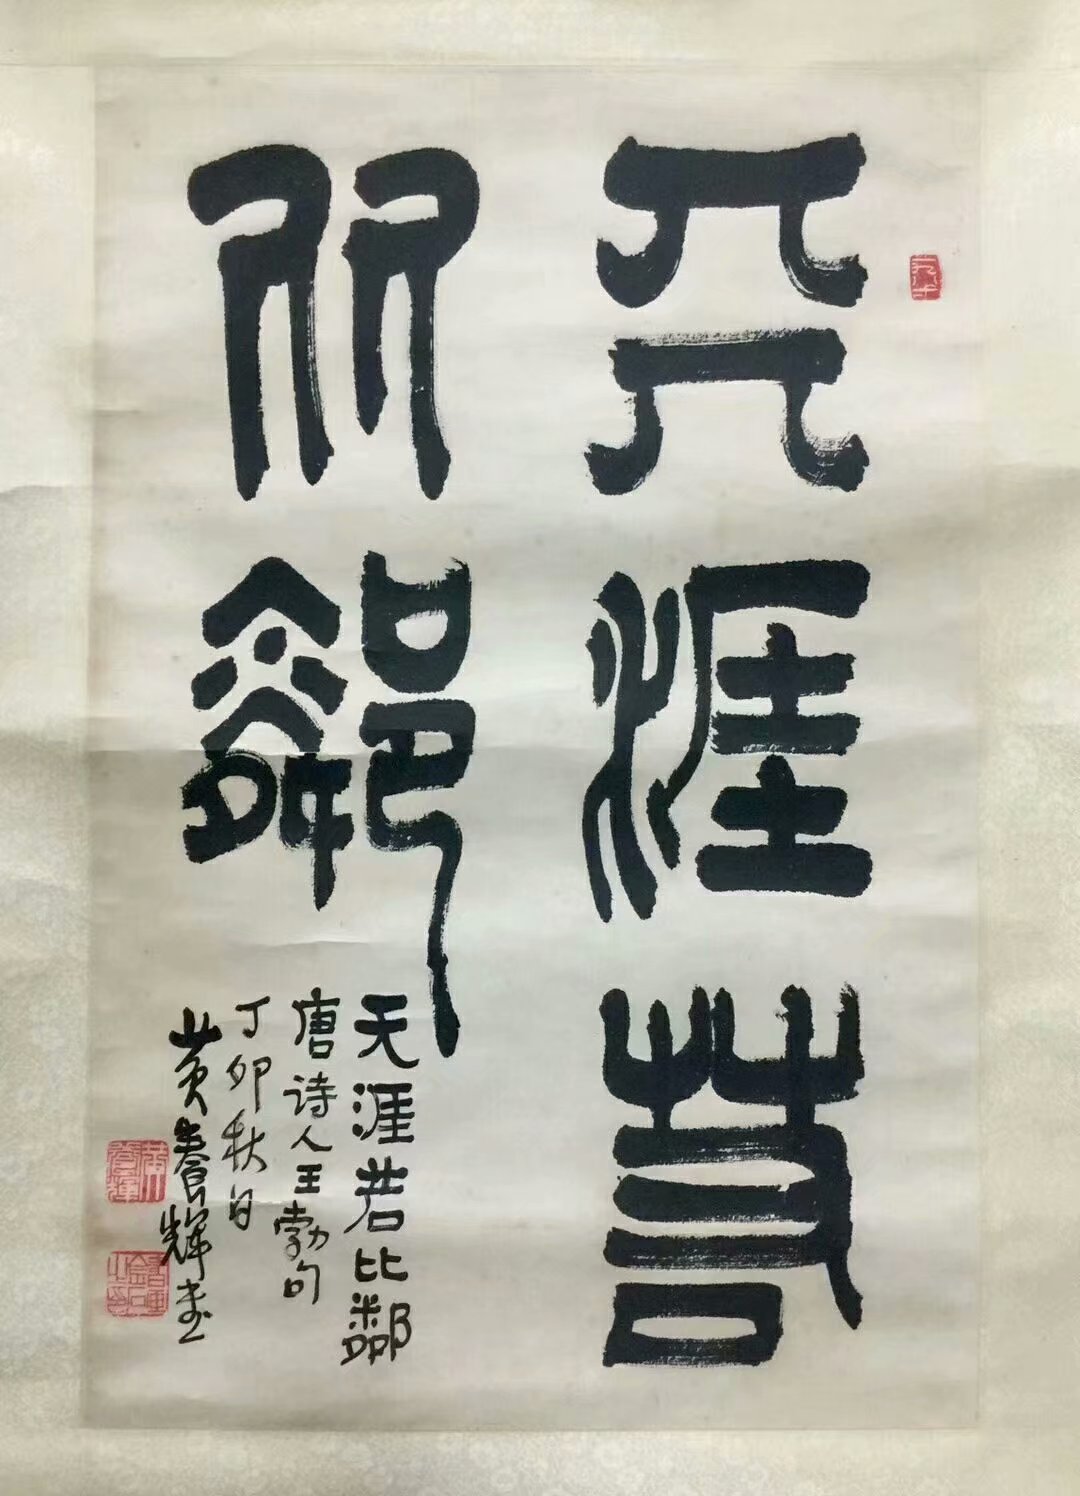 天涯若
比鄰
天涯若比鄰
唐诗人王勃句
丁卯秋日
黄養輝書
黄養輝